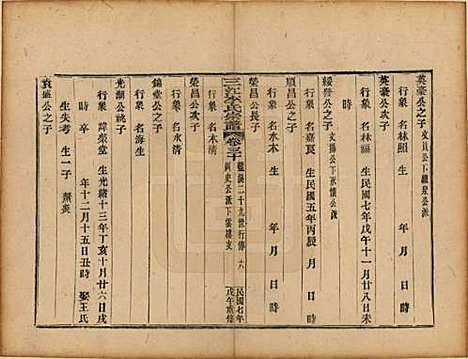 英豪公之子 文員公下繼泉公派
行衆 名林照 生 年 月 日 時
英豪公次子
行衆 名林福 生民國七年戊午十一月廿八日未
時
綏發公之子 文揚公下水懷公派
行衆 名 生民國五年丙辰 月 日 時
順昌公之子
行衆 名水木 生 年 月 日 時
榮昌公長子
三江李氏宗譜 卷三十 藴後二十九世行傳 十八
民國七年
戊午重修
行衆 名木清
榮昌公次子
行衆 名水清
錦堂公之子
行衆 名海生
光湖公祧子
行衆 諱榮堂 生光緒十三年丁亥十月廿六日戌
時 卒 年十二月十五日丑時 娶王氏
生失考 生一子
袁盛公之子